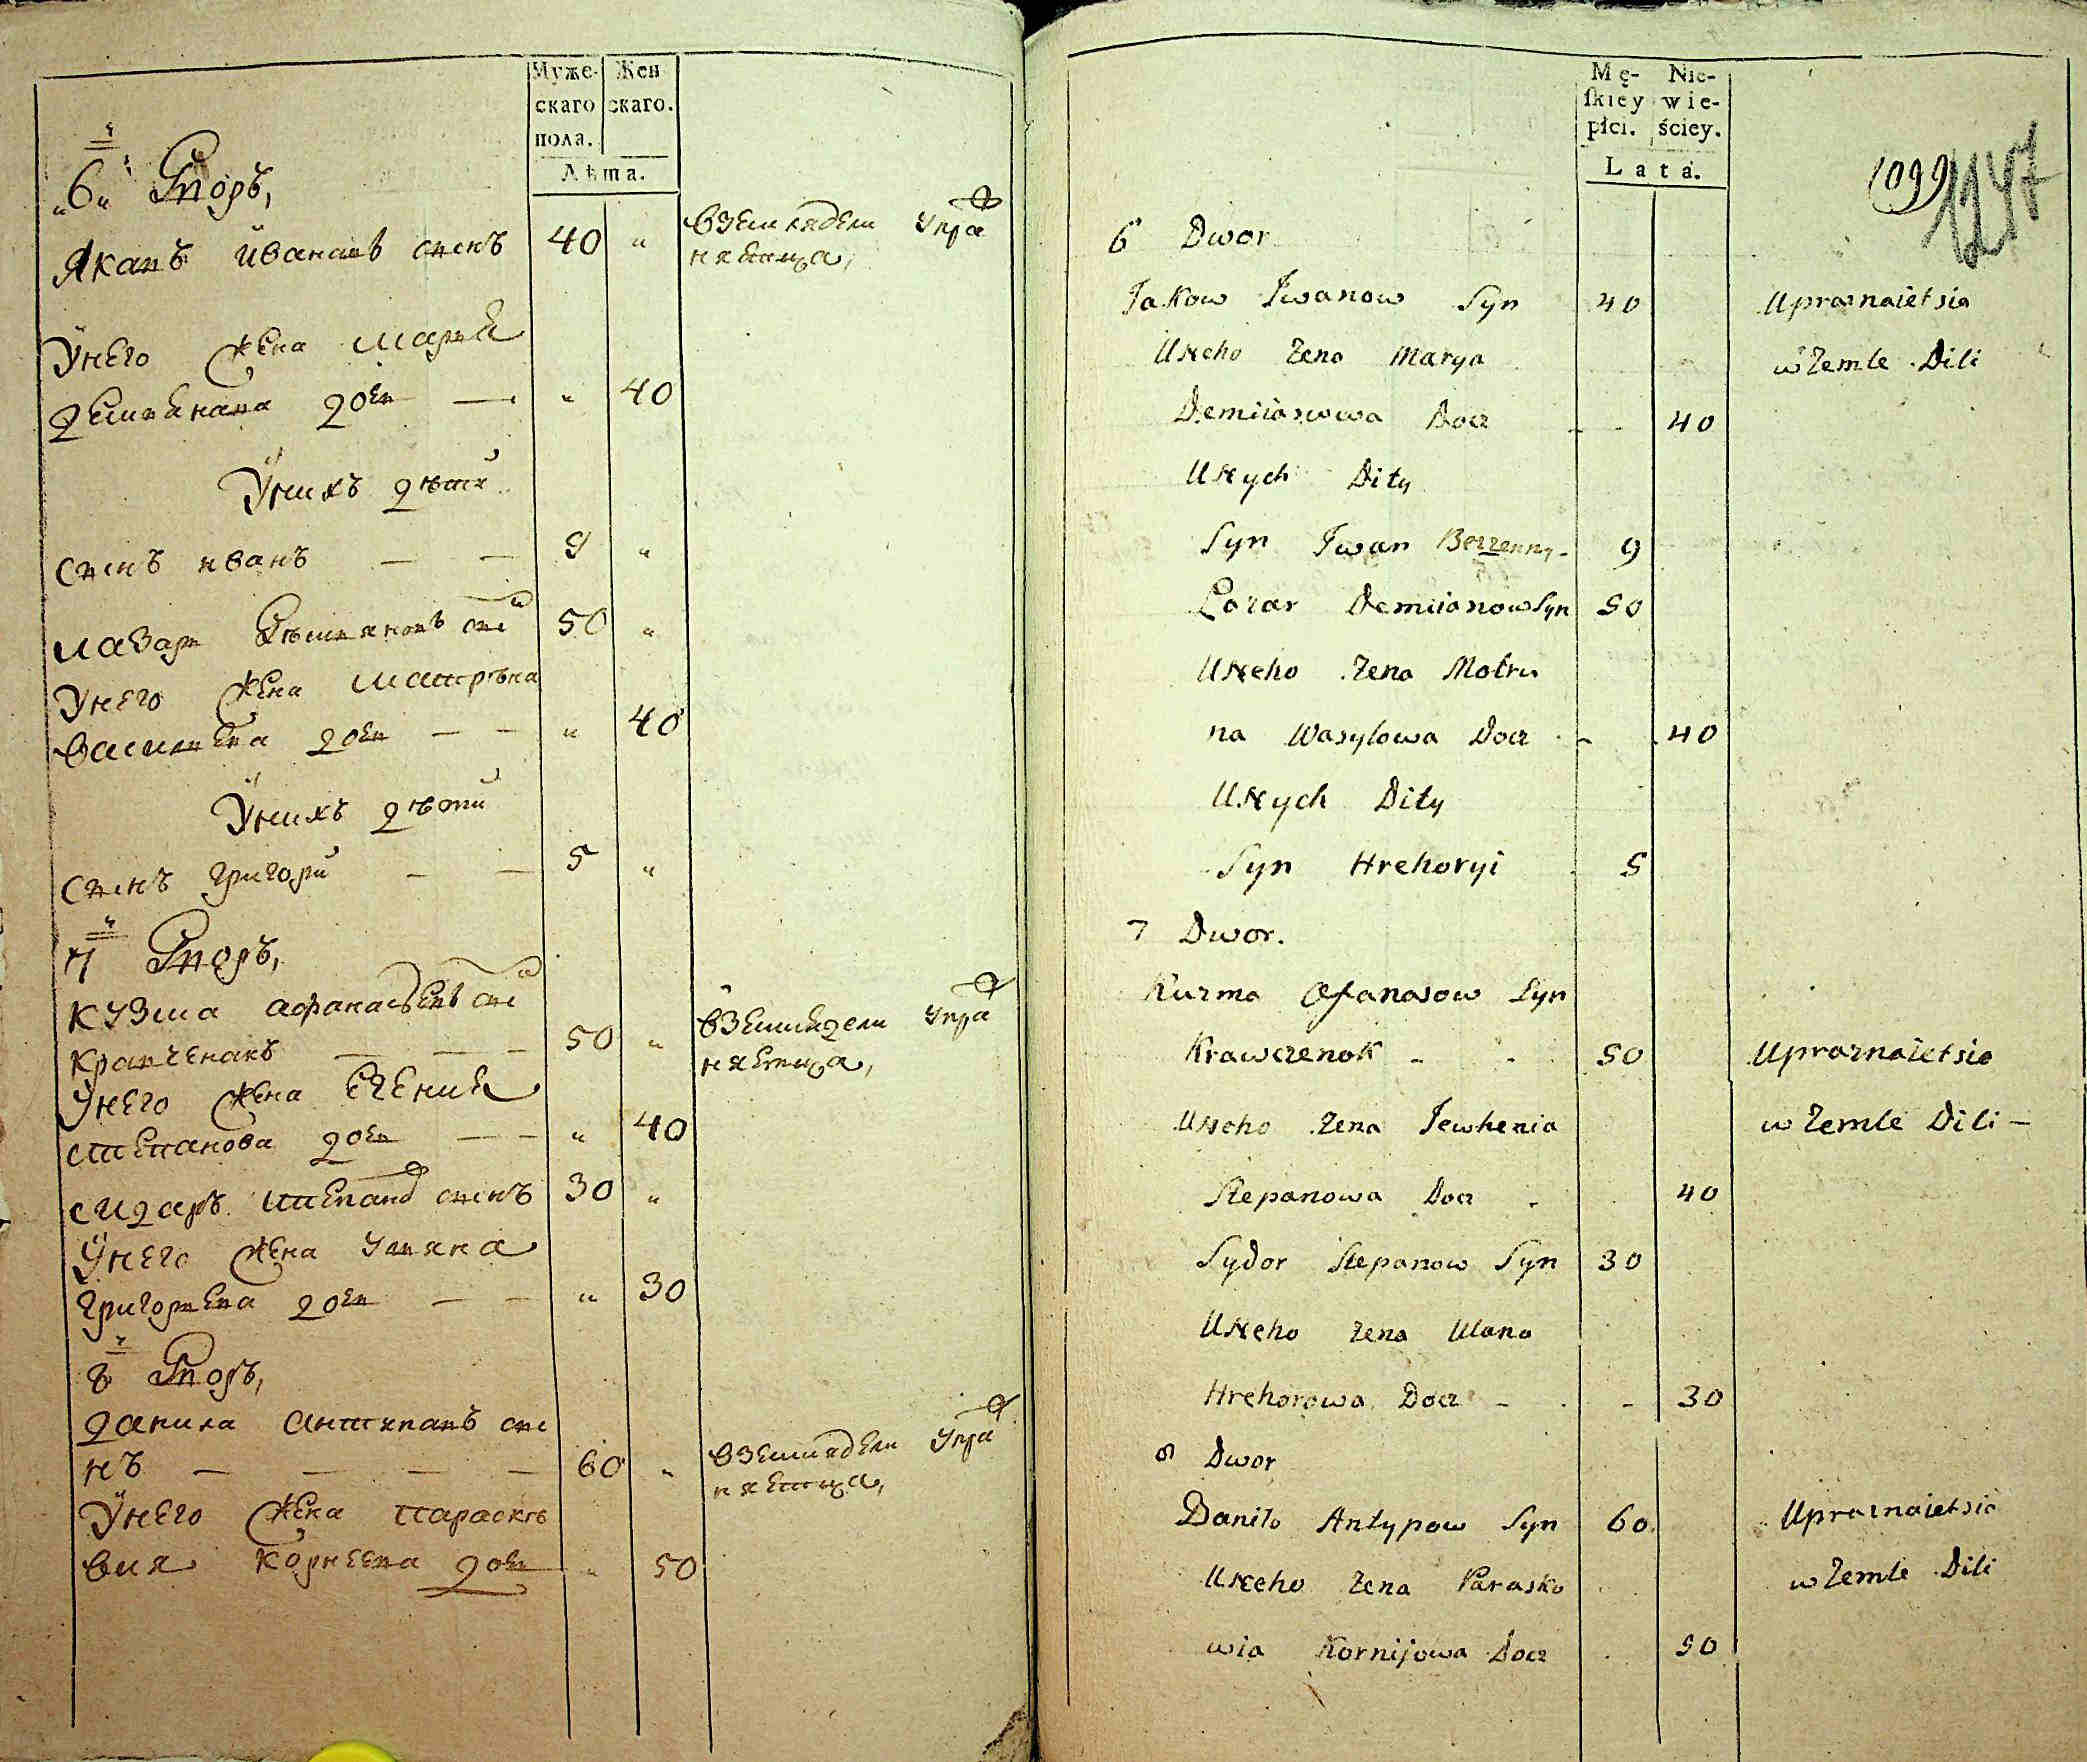 Муже-
скаго
пола.
Жен
скаго.
Лѣта.
"6" Дворъ,
Яковъ Ивановъ сынъ 40 "
вземледели Упра
няетца,
Унего жена Марья
демьянова дочь — " 40
Унихъ дѣти
сынъ иванъ — — 9 "
лазарь Демьяновъ сы 50 "
Унего жена Матрѣна
васильева дочь — — " 40
Унихъ дѣти
сынъ григори — — 5 "
7 Дворъ,
кузма афанасьевъ сы
кравченакъ — — — 50 "
вземледели Упра
няетца,
Унего жена Евгения
степанова дочь — — " 40
сидаръ степано сынъ 30 "
Унего жена Уляна
григорьева дочь — — " 30
8 Дворъ,
данила антипавъ сы
нъ — — — — 60 "
вземледели Упра
няетца,
Унего жена параскѣ
вия корнеева дочь " 50
Mę-
ſkiey
płci.
Nie-
wie-
ściey.
Lata.
1099
1247
6 Dwor
Jakow Jwanow Syn 40 Upraznaietsia
UNeho Zena Marya w Zemle Dili
Demiianowa Docz - - 40
UNych Dity
Syn Jwan 9
Lazar Demiianow Syn 50
UNeho Zena Motru
na Wasylowa Docz - 40
UNych Dity
Syn Hrehoryi 5
7 Dwor.
Kuzma Ofanasow Syn
Krawczenok - - 50 Upraznaietsia
UNeho Zena Jewhenia w Zemle Dili —
Stepanowa Docz - 40
Sydor Stepanow Syn 30
UNeho Zena Ulana
Hrehorowa Docz - - 30
8 Dwor
Danilo Antypow Syn 60 Upraznaietsia
UNeho Zena Parasko w Zemle Dili
wia Kornijowa Docz 50